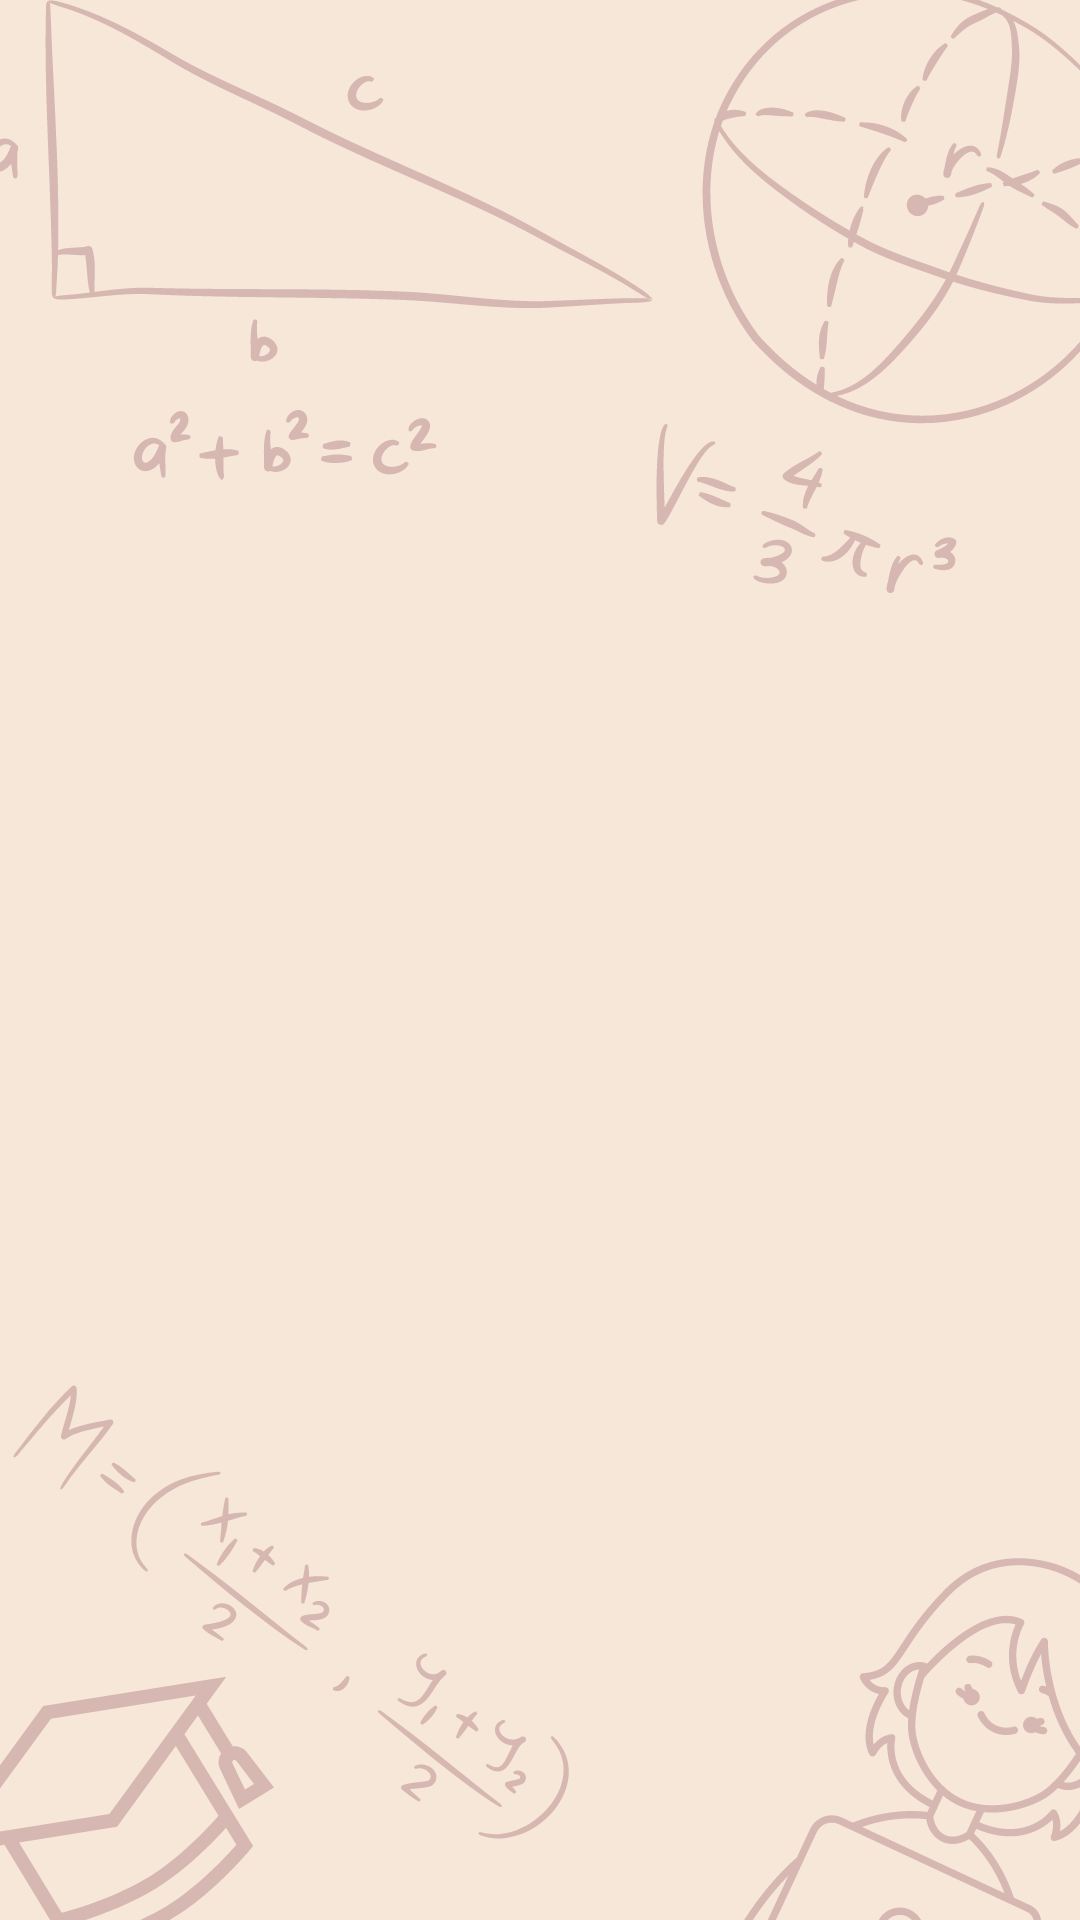 c
a
r
b
a² + b² = c²
V = 4/3 πr³
M = (x₁ + x₂ / 2 , y₁ + y₂ / 2)